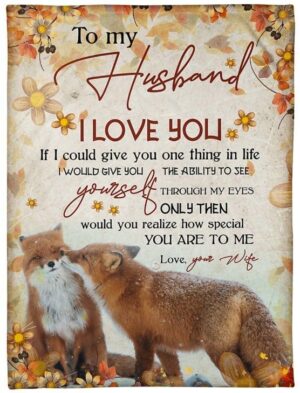 To my
Husband
I LOVE YOU
If I could give you one thing in life
I WOULD GIVE YOU THE ABILITY TO SEE
yourself THROUGH MY EYES
ONLY THEN
would you realize how special
YOU ARE TO ME
Love, your Wife